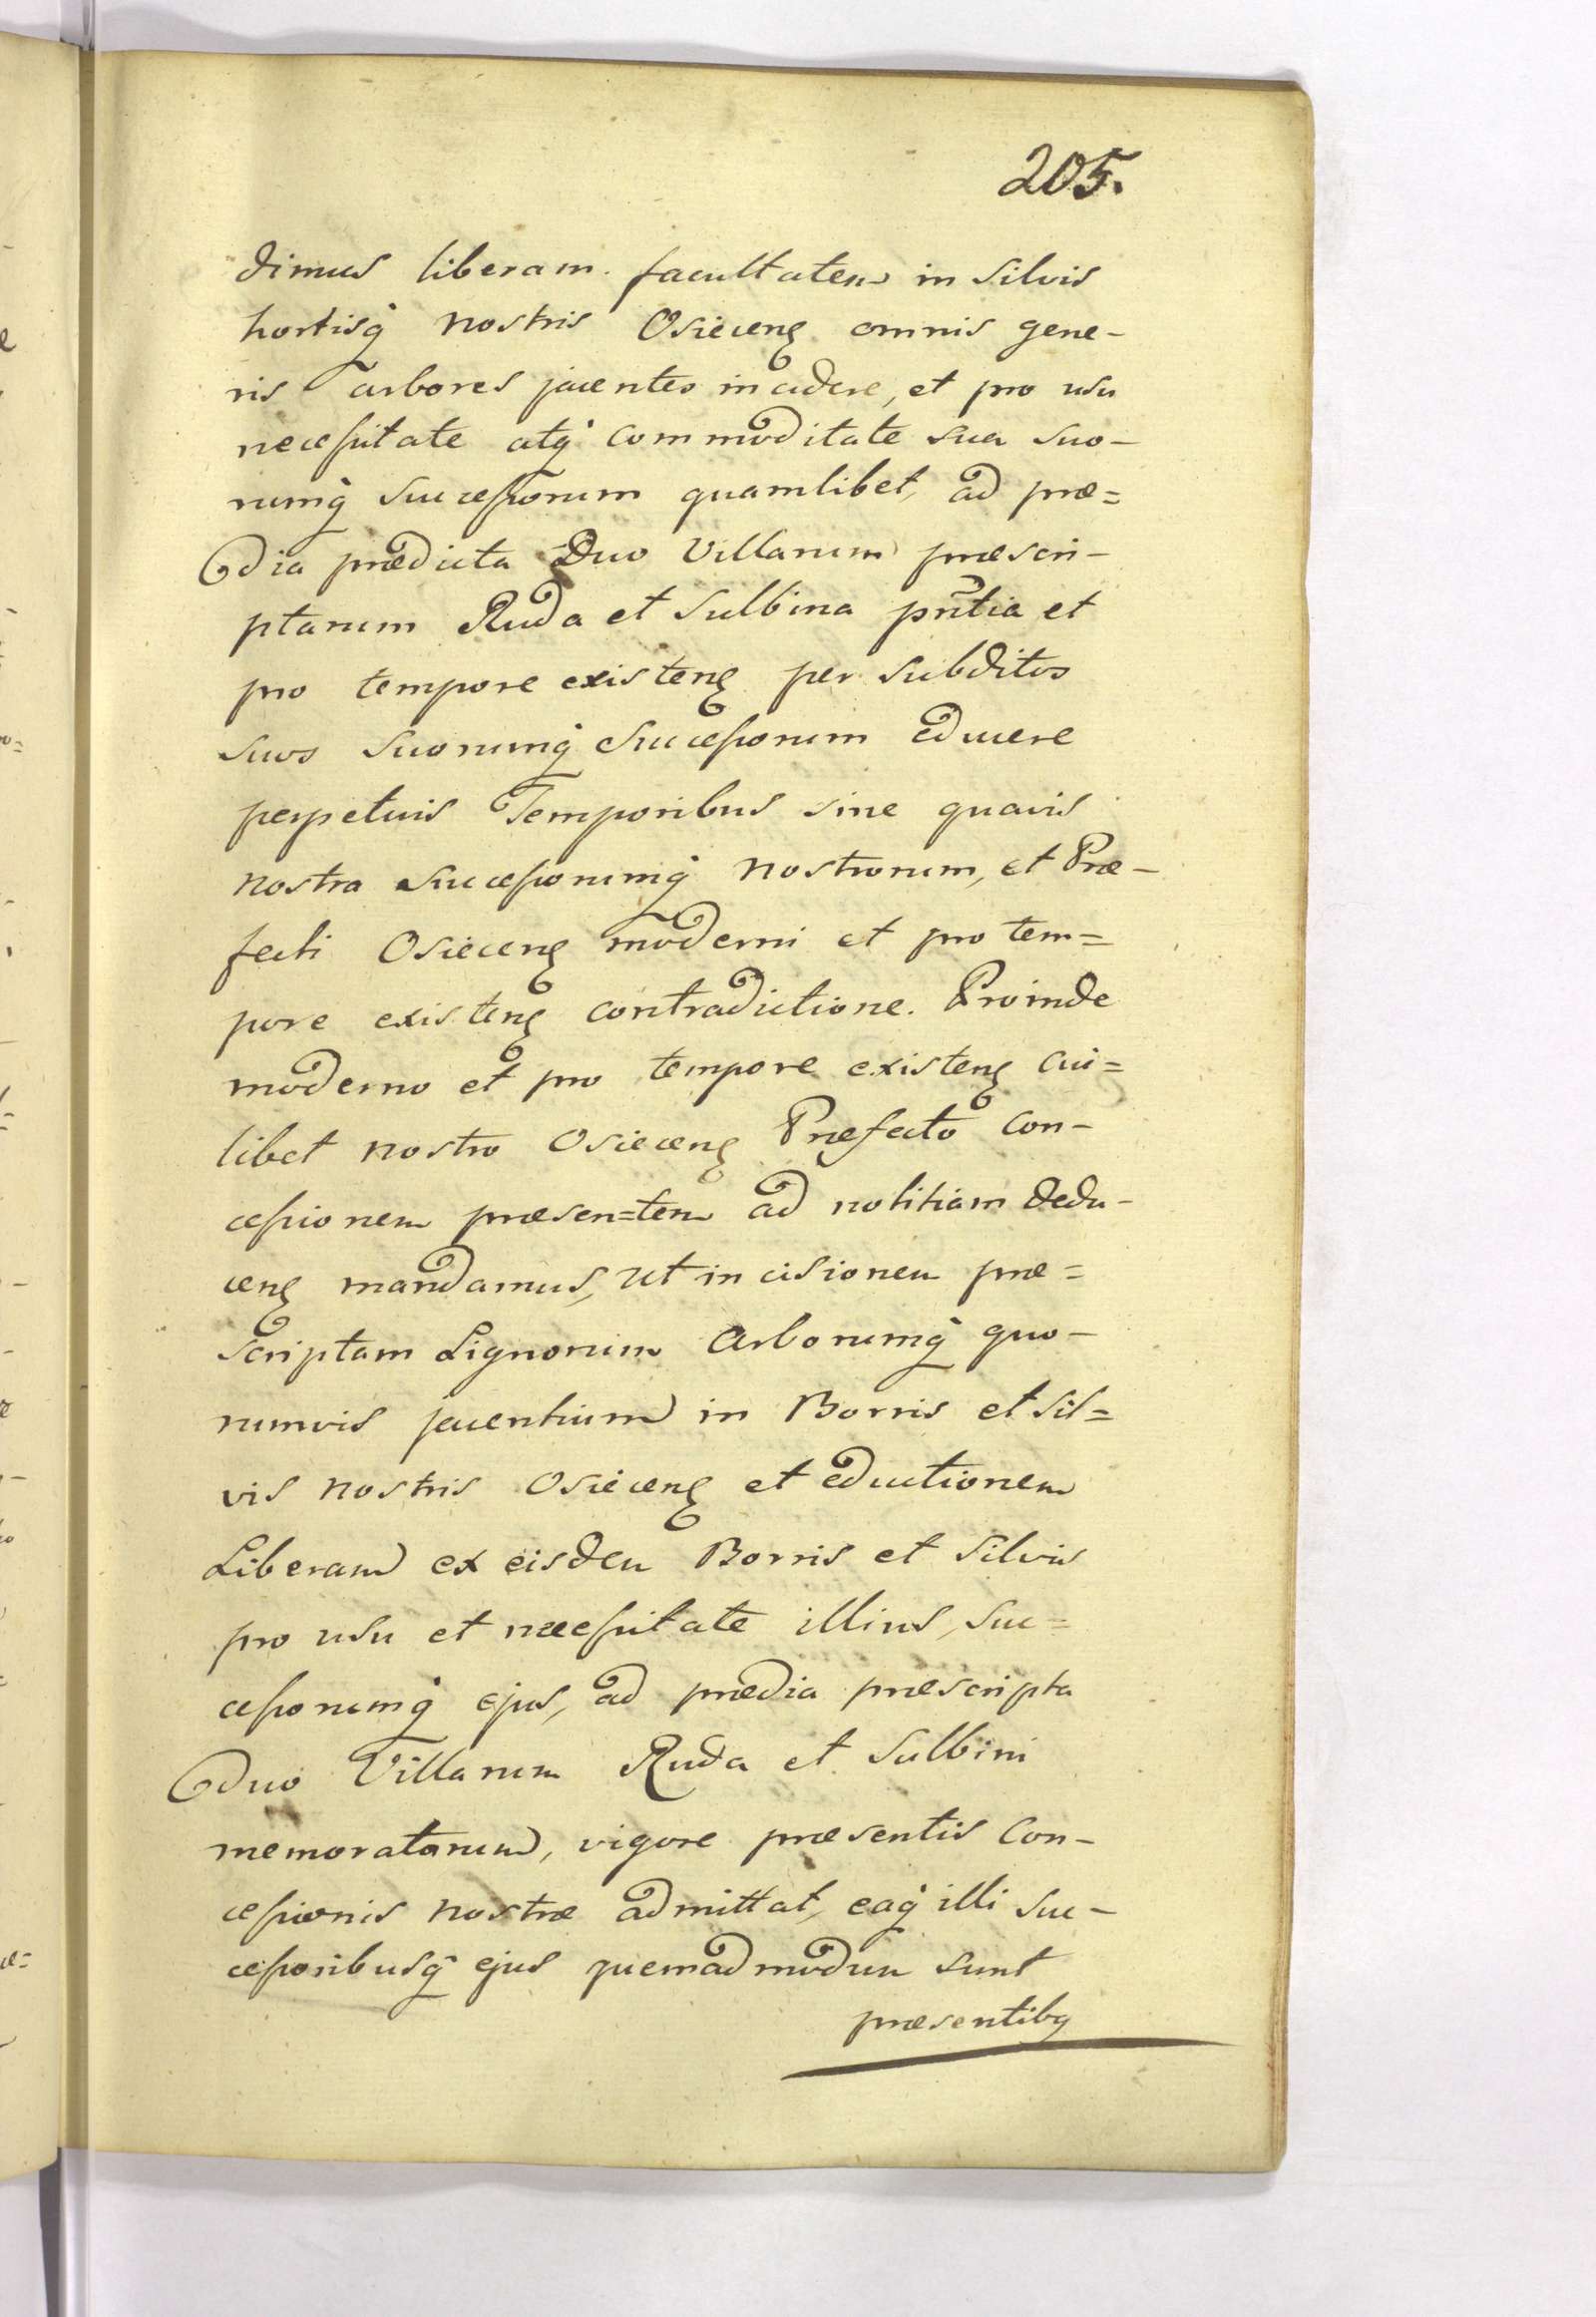 205.
dimus liberam facultatem in Silvis
hortisq nostris Osiecens omnis gene-
ris arbores jacentes incidere, et pro usu
necessitate atq commoditate sua suo-
rumq successorum quamlibet, ad præ=
dia prædicta Duo Villarum præscri-
ptarum Ruda et Sulbina pñtia et
pro tempore existens per subditos
suos suorumq successorum educere
perpetuis Temporibus sine quavis
nostra successorumq nostrorum, et Præ-
fecti Osiecens moderni et pro tem=
pore existens contradictione. Proinde
moderno et pro tempore existens cui=
libet nostro Osiecens Præfecto con-
cessionem præsen=tem ad notitiam dedu-
cens mandamus, ut incisionem præ=
scriptam Lignorum Arborumq quo-
rumvis jacentium in Borris et sil=
vis nostris Osiecens et eductionem
Liberam ex eisdem Borris et Silvis
pro usu et necessitate illius, suc=
cessorumq ejus, ad prædia præscripta
Duo Villarum Ruda et Sulbini
memoratarum, vigore præsentis con-
cessionis nostræ admittat, eaq illi suc-
cessoribusq ejus quemadmodum sunt
præsentibq